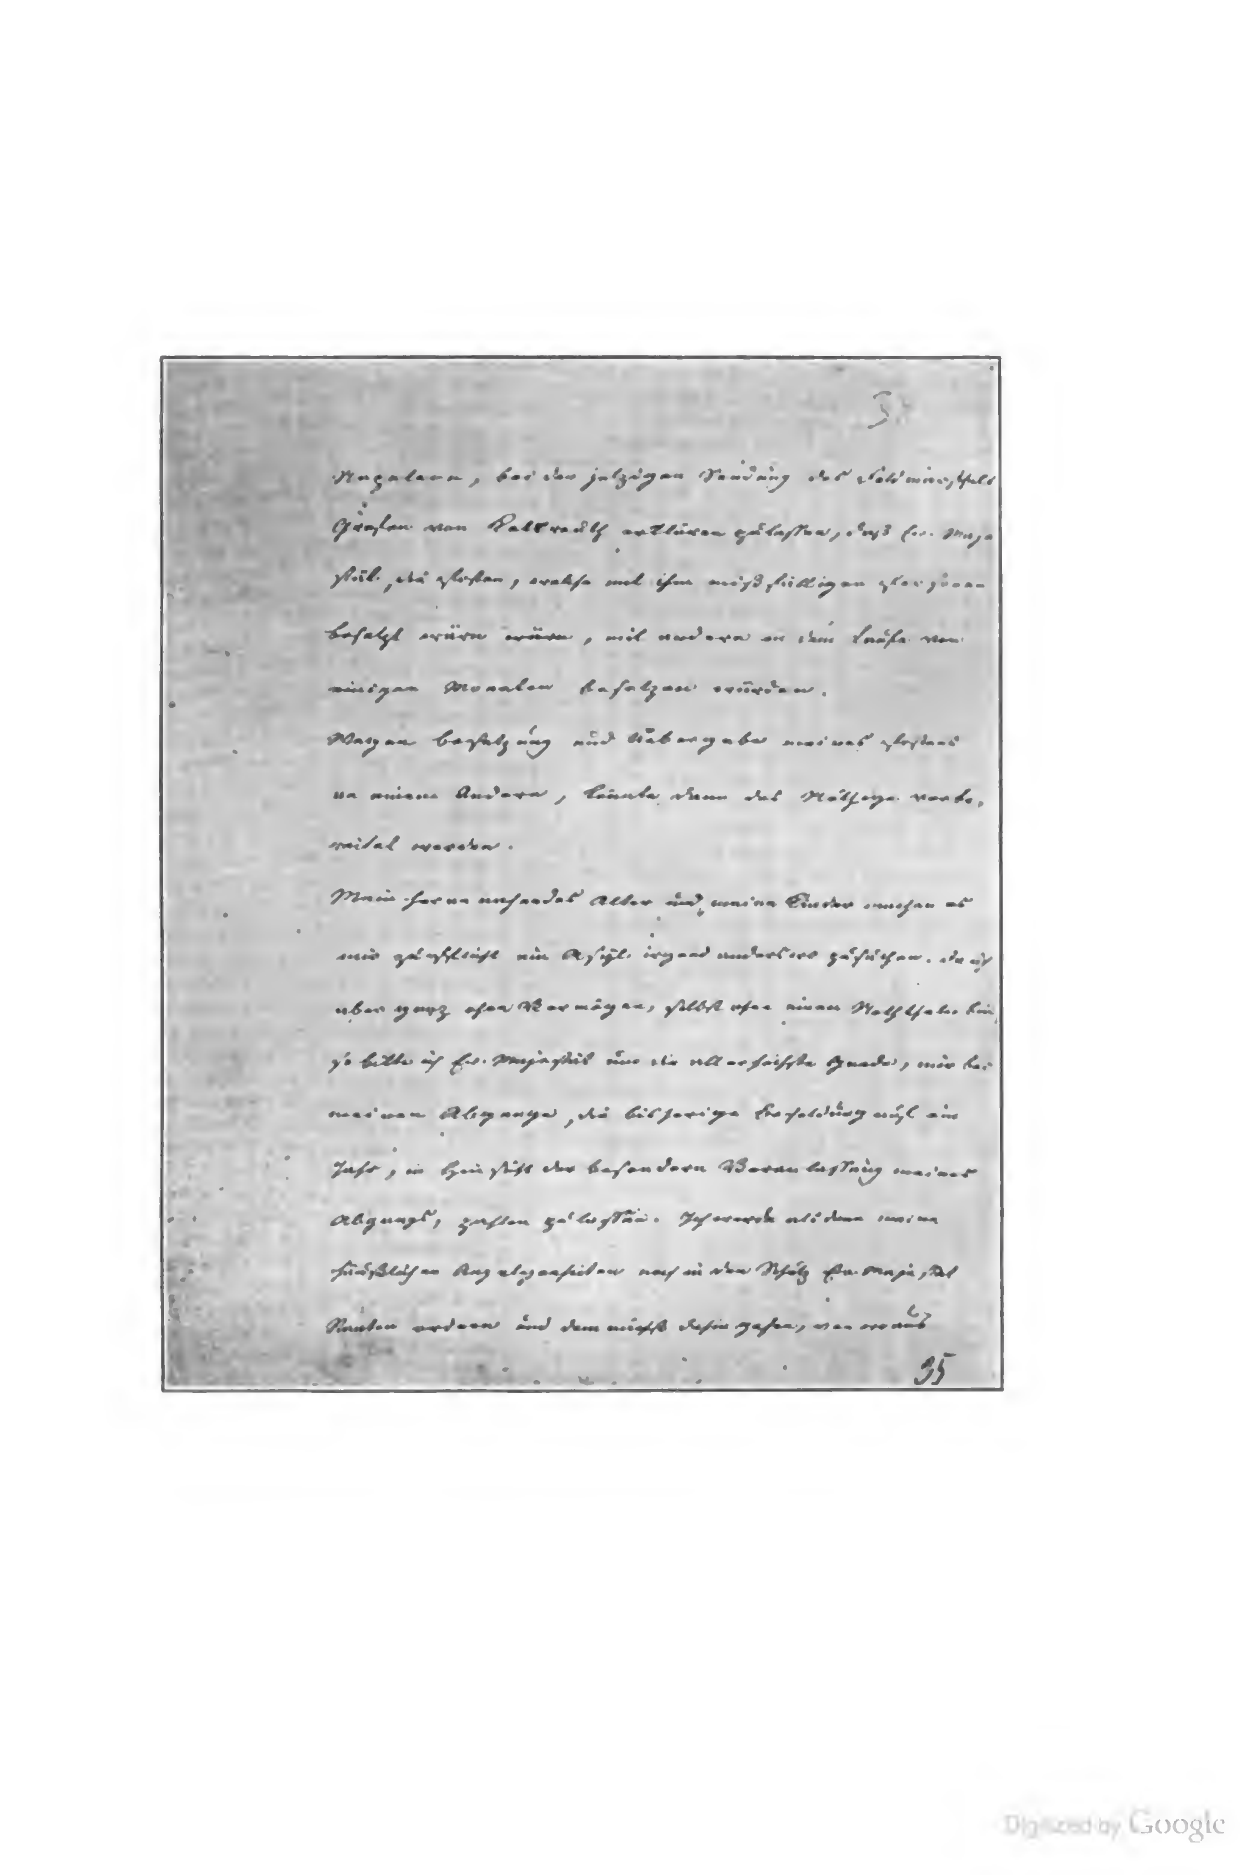 38
Napoleon, bei der jetzigen Sendung des Feldmarschalls
Grafen von Kalkreuth erklären zulassen, daß Ew. Maje
stät, die Posten, welche mit ihm mißfälligen Personen
besetzt wären wären, mit andern in dem Laufe von
einigen Monaten besetzen würden.
Wegen Besetzung und Uebergabe meines Postens
an einen Andern, könnte dann das Nöthige vorbe,
reitet werden.
Mein herannahendes Alter und meine Kinder machen es
mir zur Pflicht ein Asyl irgend anderswo zusuchen. Da ich
aber ganz ohne Vermögen, selbst ohne einen Nothhaler bin,
so bitte ich Ew. Majestät um die allerhöchste Gnade, mir bei
meinem Abgange, die bisherige Besoldung auf ein
Jahr, in Hinsicht der besondern Veranlassung meines
Abgangs, zahlen zulassen. Ich werde alsdann meine
häußlichen Angelegenheiten noch in den Schutz Ew. Majestät
Staaten ordnen und demnächst dahin gehen, von woaus
35
Digitized by Google